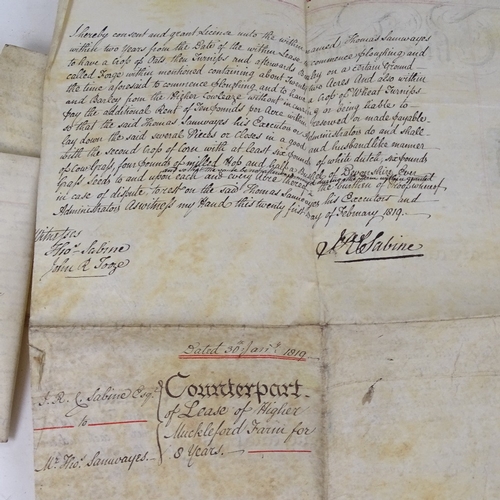 I hereby consent and grant License unto the within named Thomas Samwayes
within two Years from the Date of the within Lease to commence ploughing and
to have a Crop of Oats then Turnips and afterwards Barley on a certain Ground
called Forge within mentioned containing about Twenty two Acres And also within
the time aforesaid to commence ploughing and to have a Crop of Wheat Turnips
and Barley from the Higher Cowleaze without incurring or being liable to
pay the additional Rent of Ten Pounds per Acre within reserved or made payable
so that the said Thomas Samwayes his Executors or Administrators do and shall
lay down the said several Pieces or Closes in a good and husbandlike manner
with the second Crop of Corn with at least six pounds of white dutch, six pounds
of Cow Grass, four pounds of milled Hop and half a Bushel of Devonshire Ever
Grass Seeds to and upon each and every Acre thereof the burthen of Proof whereof
in case of dispute to rest on the said Thomas Samwayes his Executors and
Administrators As witness my Hand this twenty first Day of February 1819.
Witnesses
Thos. Sabine
John R Tooze
J R C Sabine
Dated 30th Janry. 1819
J. R. C. Sabine Esqr.
to
Mr. Thos. Samwayes
Counterpart
of Lease of Higher
Muckleford Farm for
8 Years.